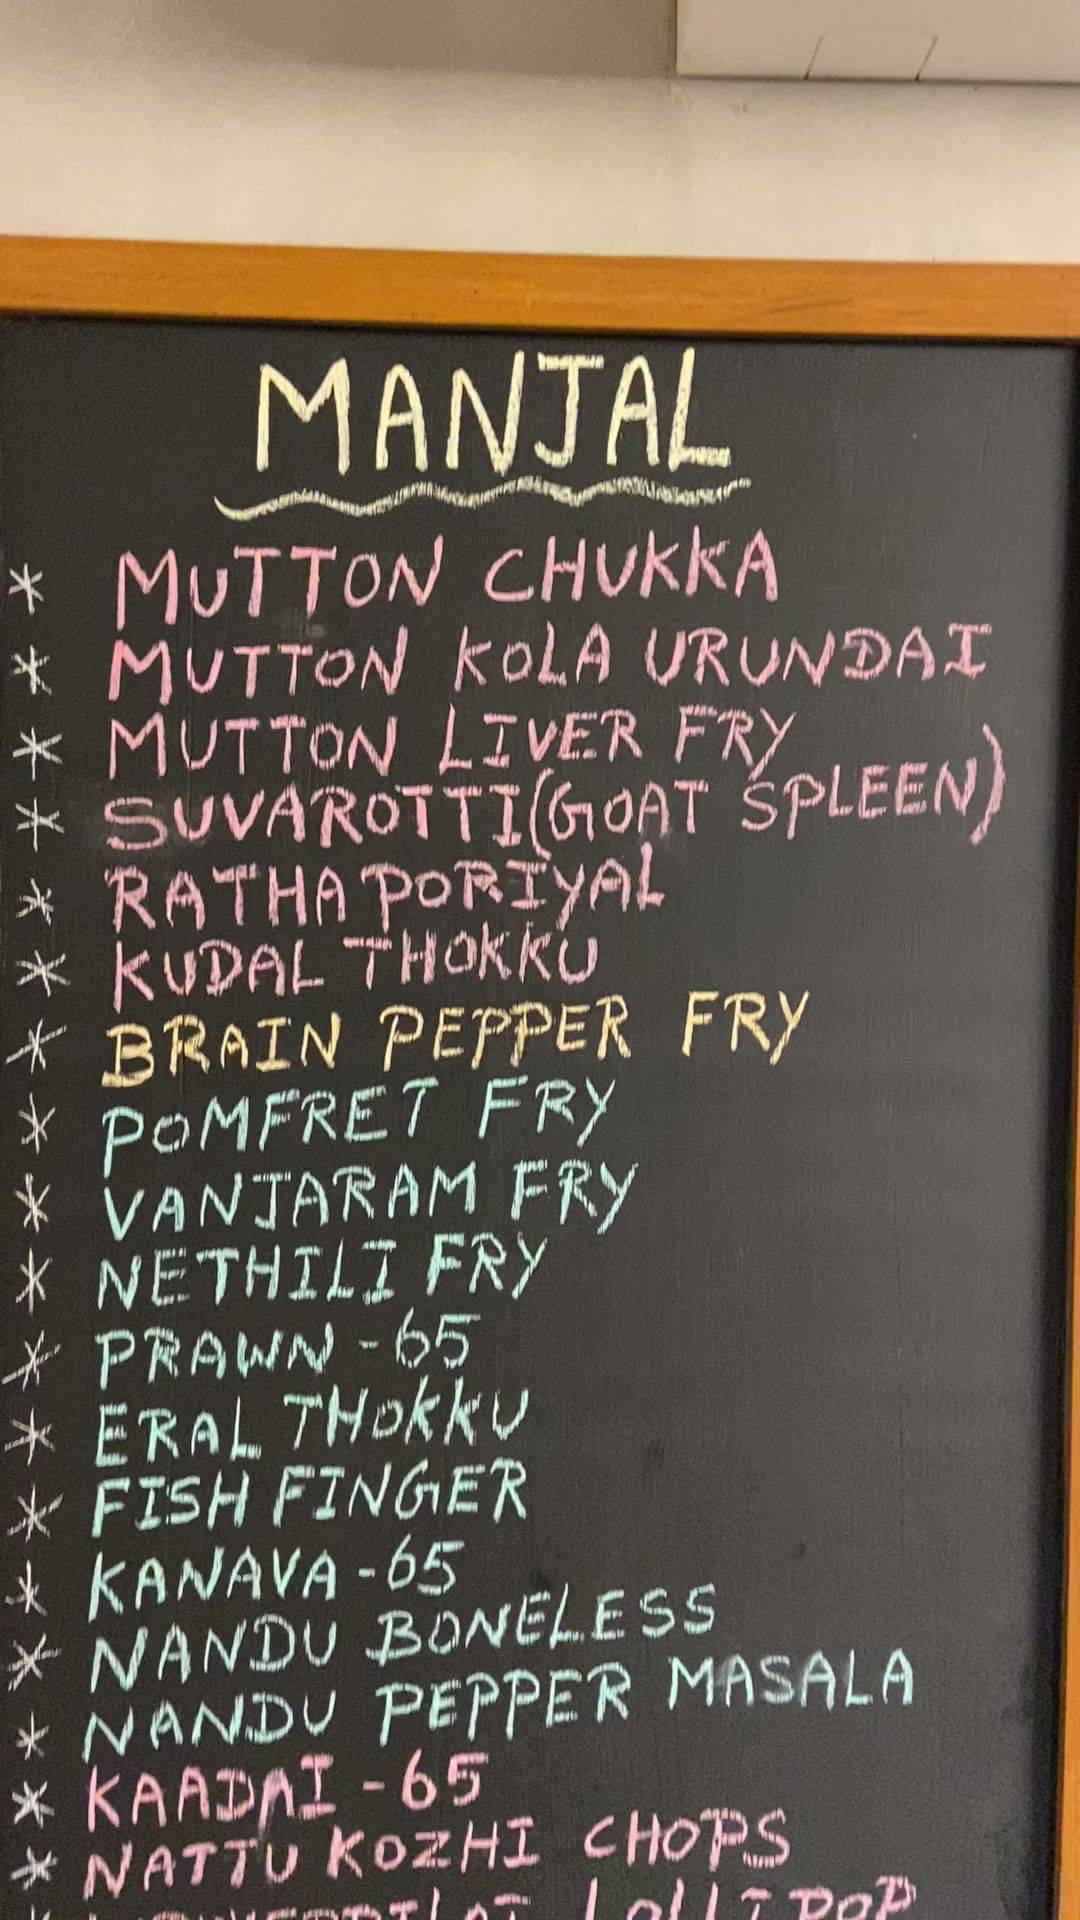 MANJAL
* MUTTON CHUKKA
* MUTTON KOLA URUNDAI
* MUTTON LIVER FRY
* SUVAROTTI(GOAT SPLEEN)
* RATHA PORIYAL
* KUDAL THOKKU
* BRAIN PEPPER FRY
* POMFRET FRY
* VANJARAM FRY
* NETHILI FRY
* PRAWN-65
* ERAL THOKKU
* FISH FINGER
* KANAVA-65
* NANDU BONELESS
* NANDU PEPPER MASALA
* KAADAI-65
* NATTU KOZHI CHOPS
* LOLLIPOP